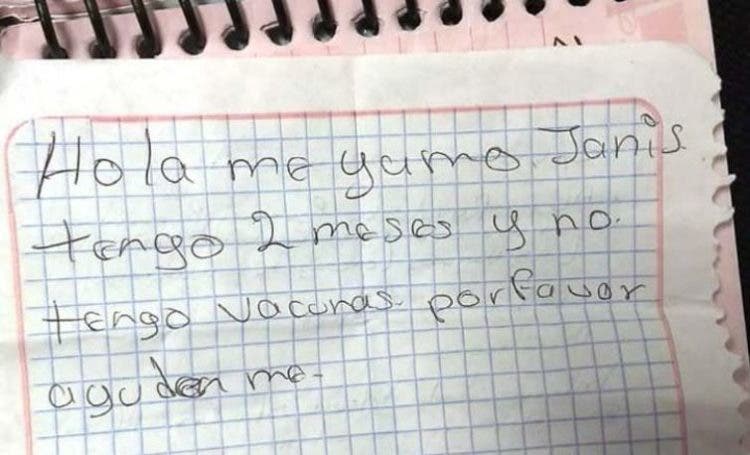 Hola me yamo Janis
tengo 2 meses y no.
tengo vacunas. porfavor
aguden me-